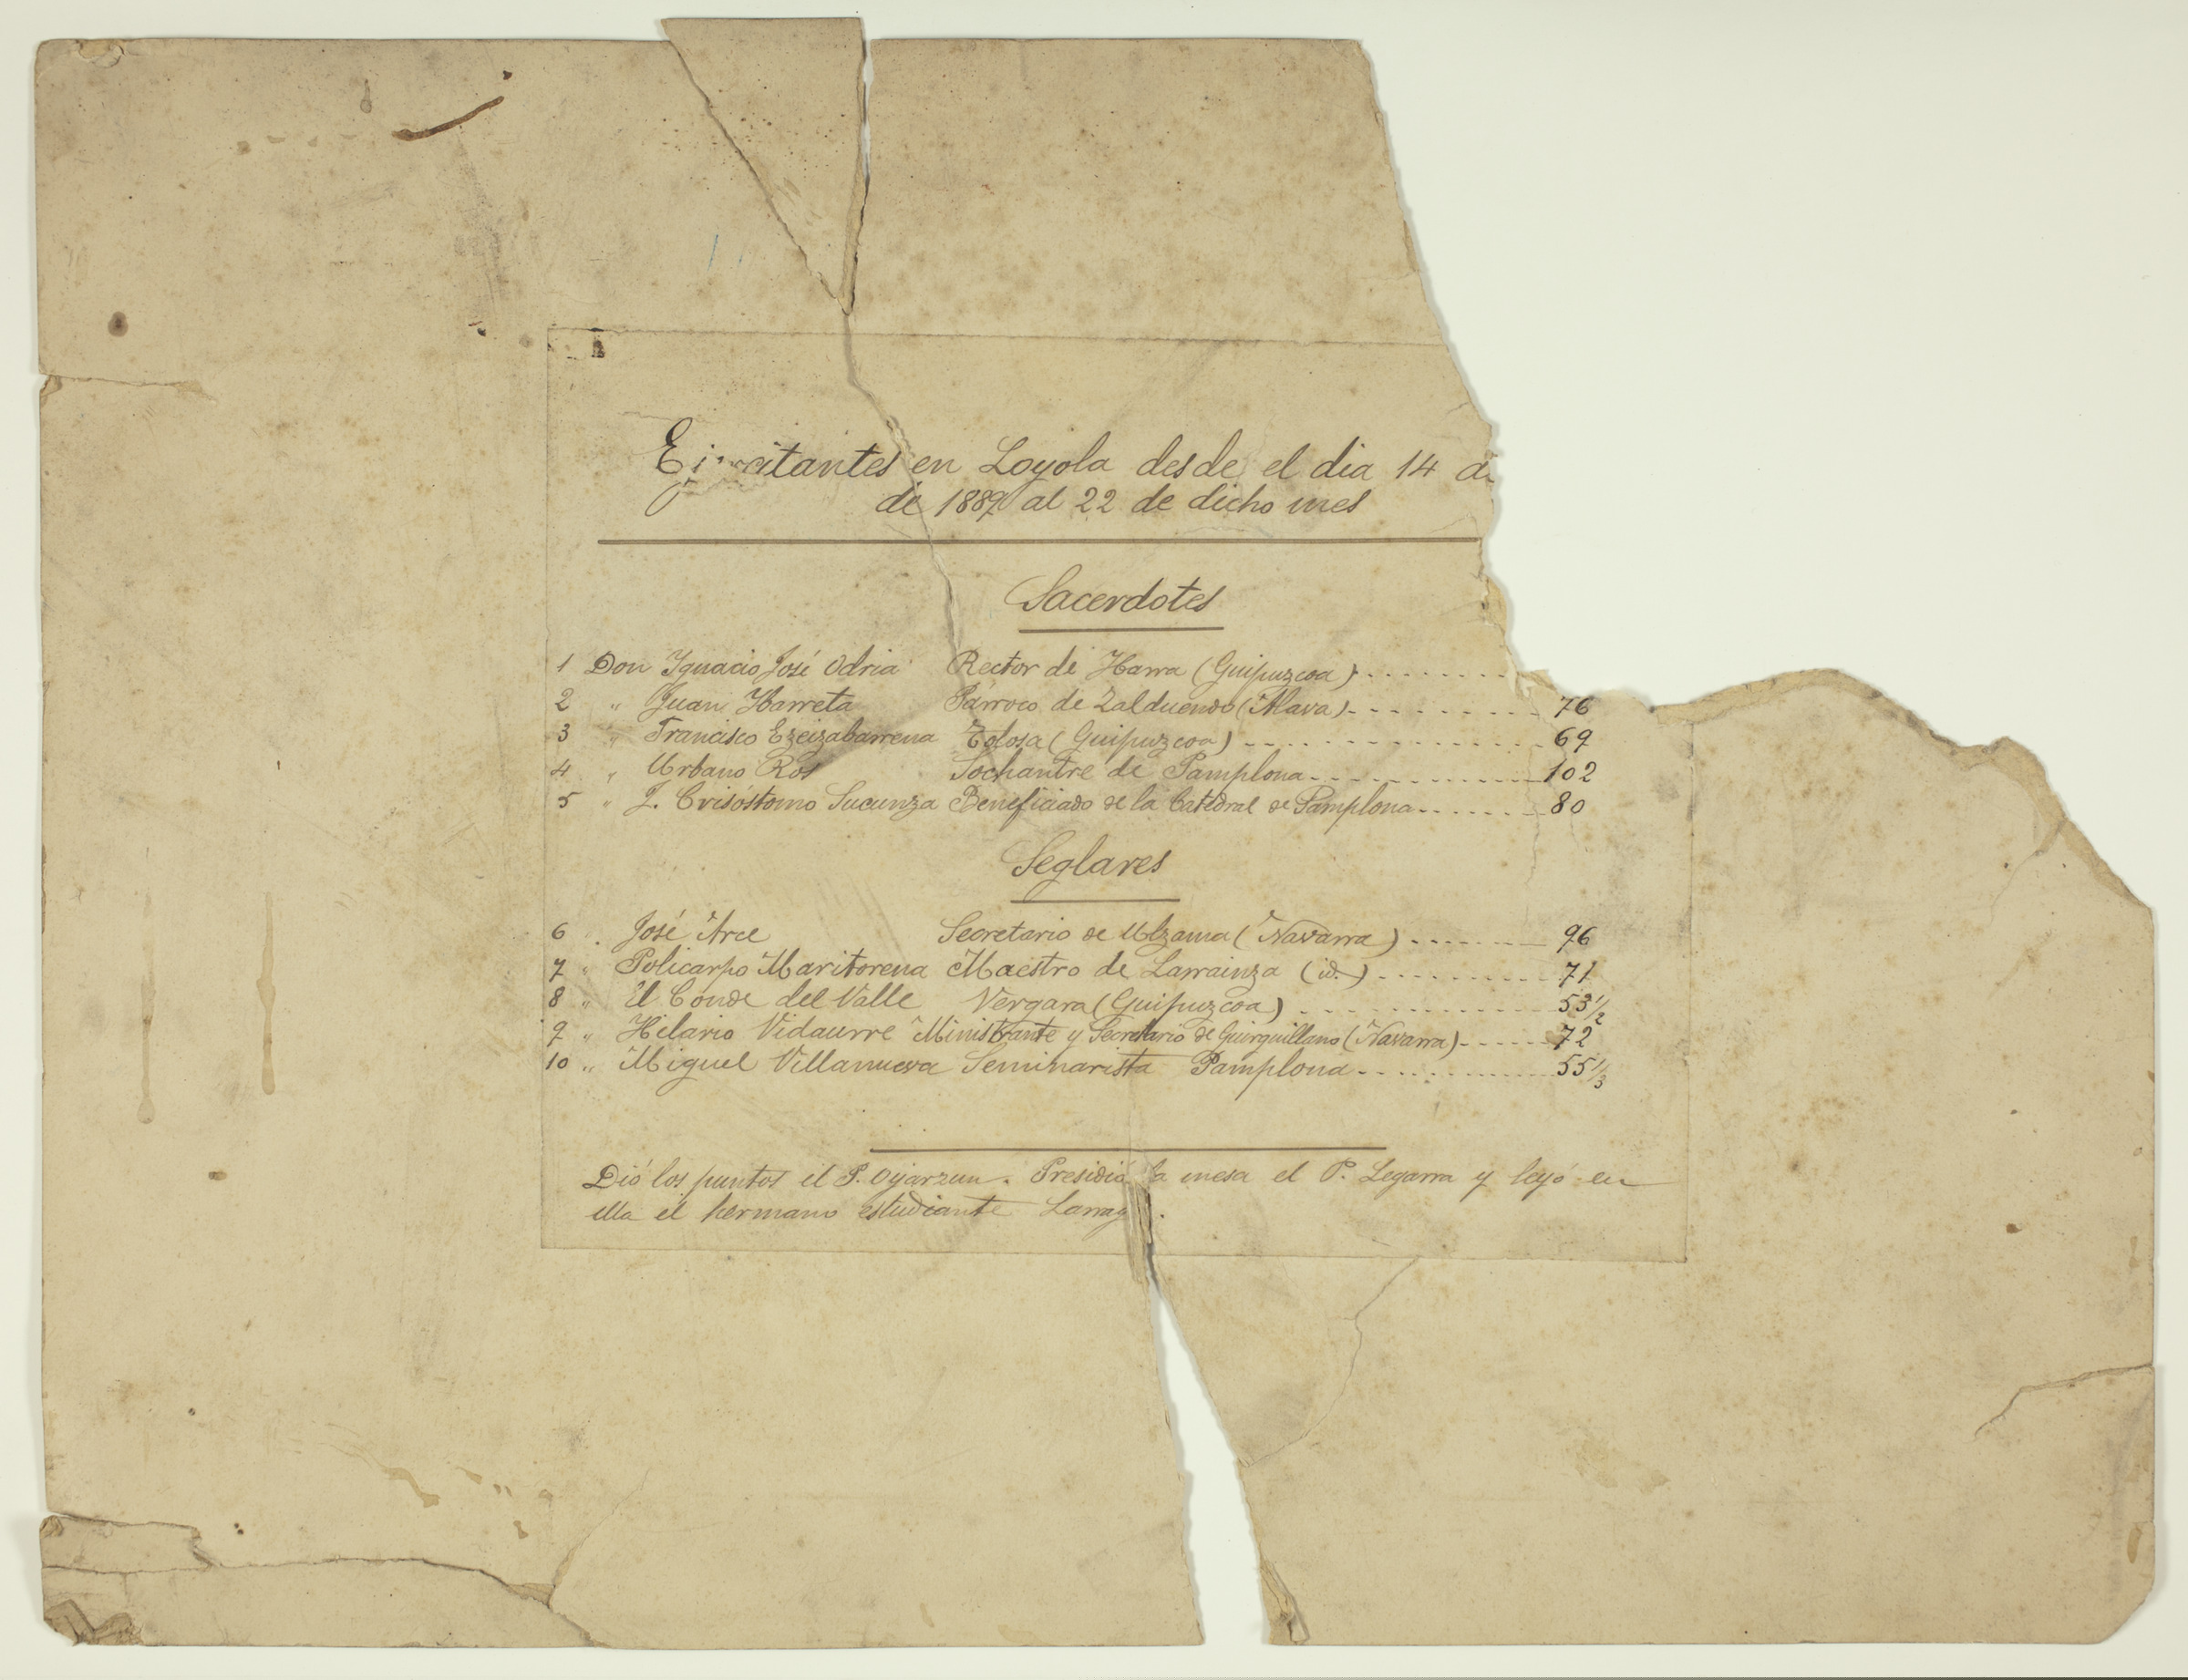 Ejercitantes en Loyola desde el dia 14 de
de 1889 al 22 de dicho mes
Sacerdotes
1 Don Ignacio José Odria Rector de Ibarra (Guipuzcoa) ........
2 " Juan Ibarreta Párroco de Zalduendo (Alava) ......... 76
3 " Francisco Ezeizabarrena Tolosa (Guipuzcoa) ............. 69
4 " Urbano Ros Sochantre de Pamplona ............ 102
5 " J. Crisóstomo Sucunza Beneficiado de la Catedral de Pamplona ....... 80
Seglares
6 " José Arce Secretario de Ulzama (Navarra) ........ 96
7 " Policarpo Maritorena Maestro de Larrainza (id.) .......... 71
8 " El Conde del Valle Vergara (Guipuzcoa) ............. 53 1/2
9 " Hilario Vidaurre Ministrante y Secretario de Guirguillano (Navarra) ...... 72
10 " Miguel Villanueva Seminarista Pamplona ............ 55 1/3
Dió los puntos el P. Oyarzun. Presidió la mesa el P. Legarra y leyó en
ella el hermano estudiante